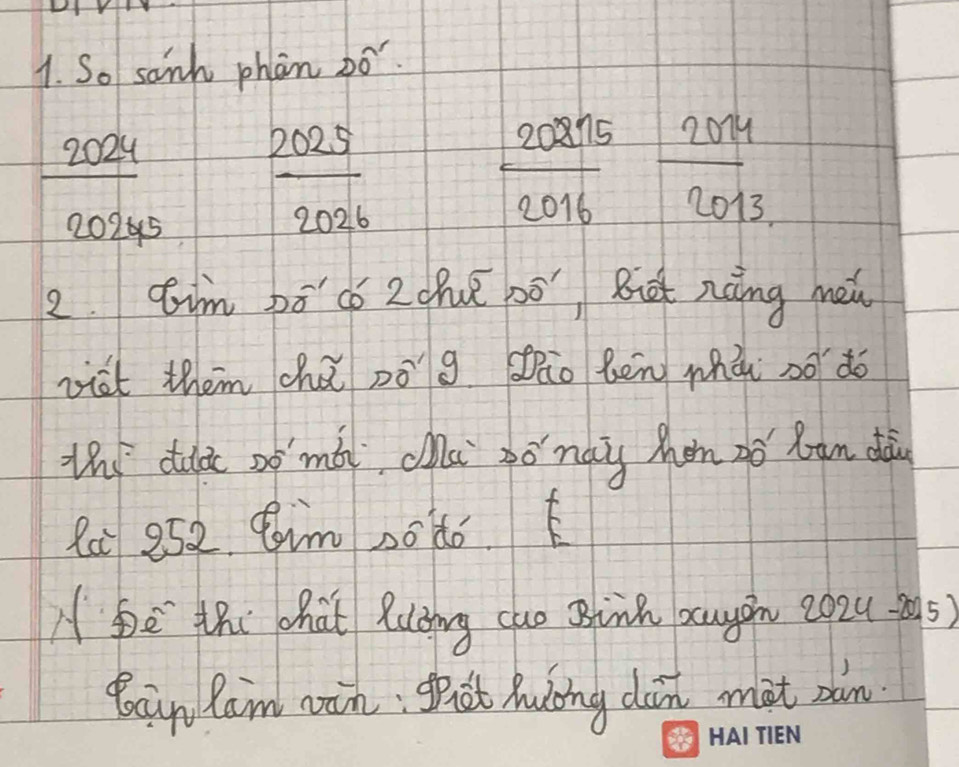 1. So sánh phân số.
2024 2025 2015 2014
2025 2026 2016 2013.
2. Tìm số có 2 chữ số, Biết rằng nếu
viết thêm chữ số 9 vào bên phải số đó
thì được số mới. Mà số này hơn số ban đầu
là 252. Tìm số đó. t
Đề thi chất lượng cao Bình xuyên 2024-2025)
Tập làm văn: Viết hướng dẫn một sản.
HAI TIEN